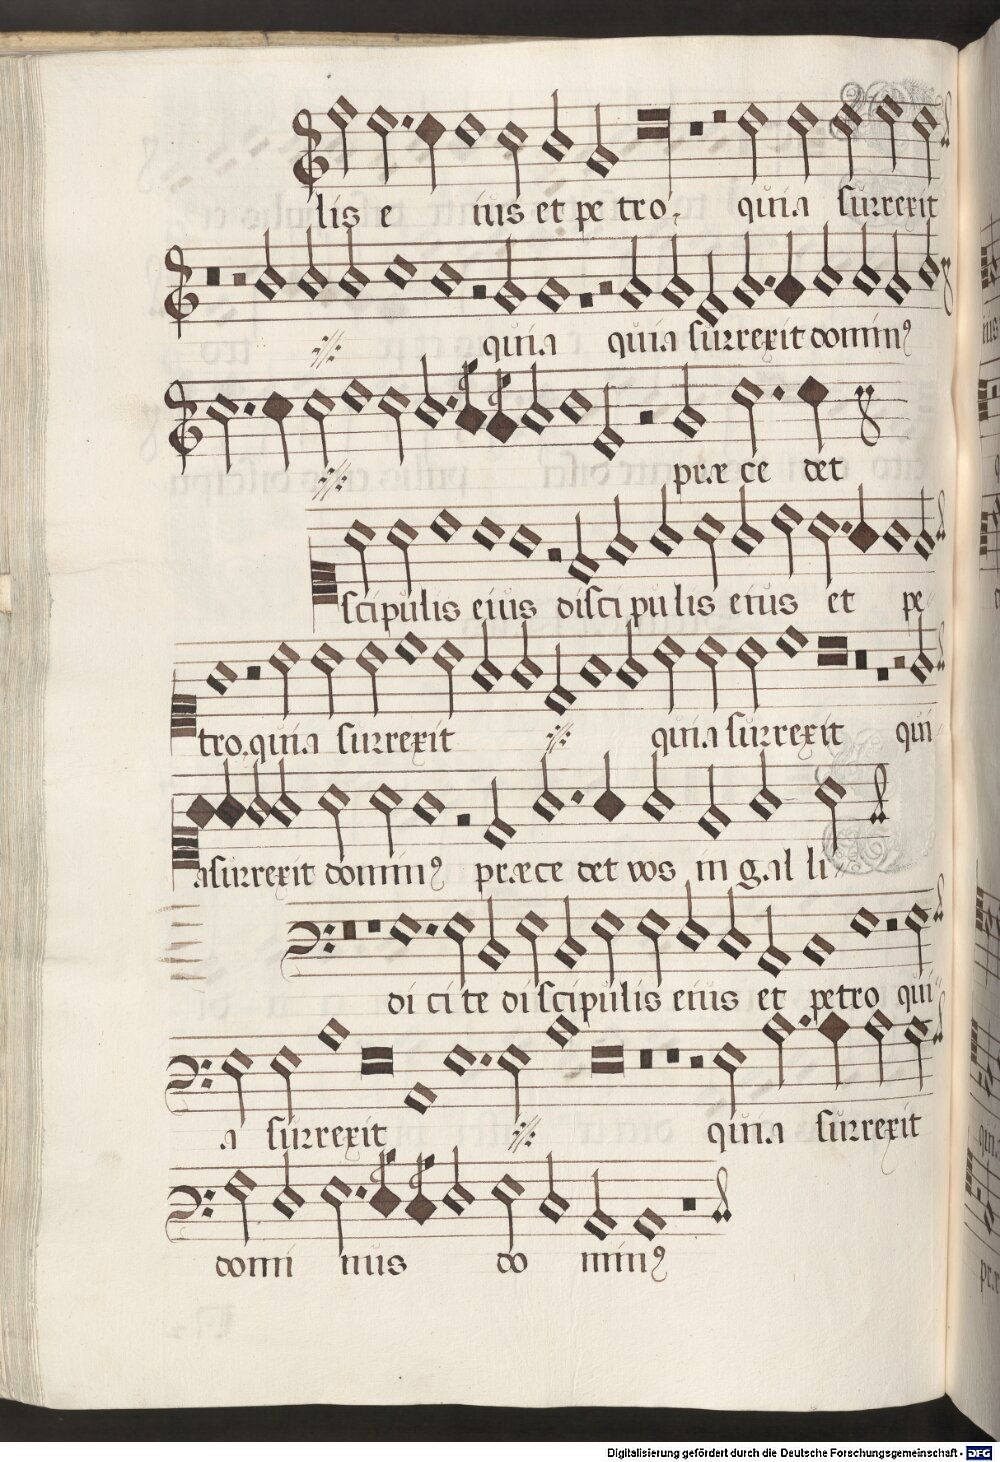 lis e ius et pe tro, quia surrexit
quia quia surrexit dominꝰ
præ ce det
scipulis eius discipulis eius et pe
tro, quia surrexit quia surrexit qui
a surrexit dominꝰ præce det vos in gal li
di ci te discipulis eius et petro qui
a surrexit quia surrexit
domi nus do minꝰ
Digitalisierung gefördert durch die Deutsche Forschungsgemeinschaft - DFG